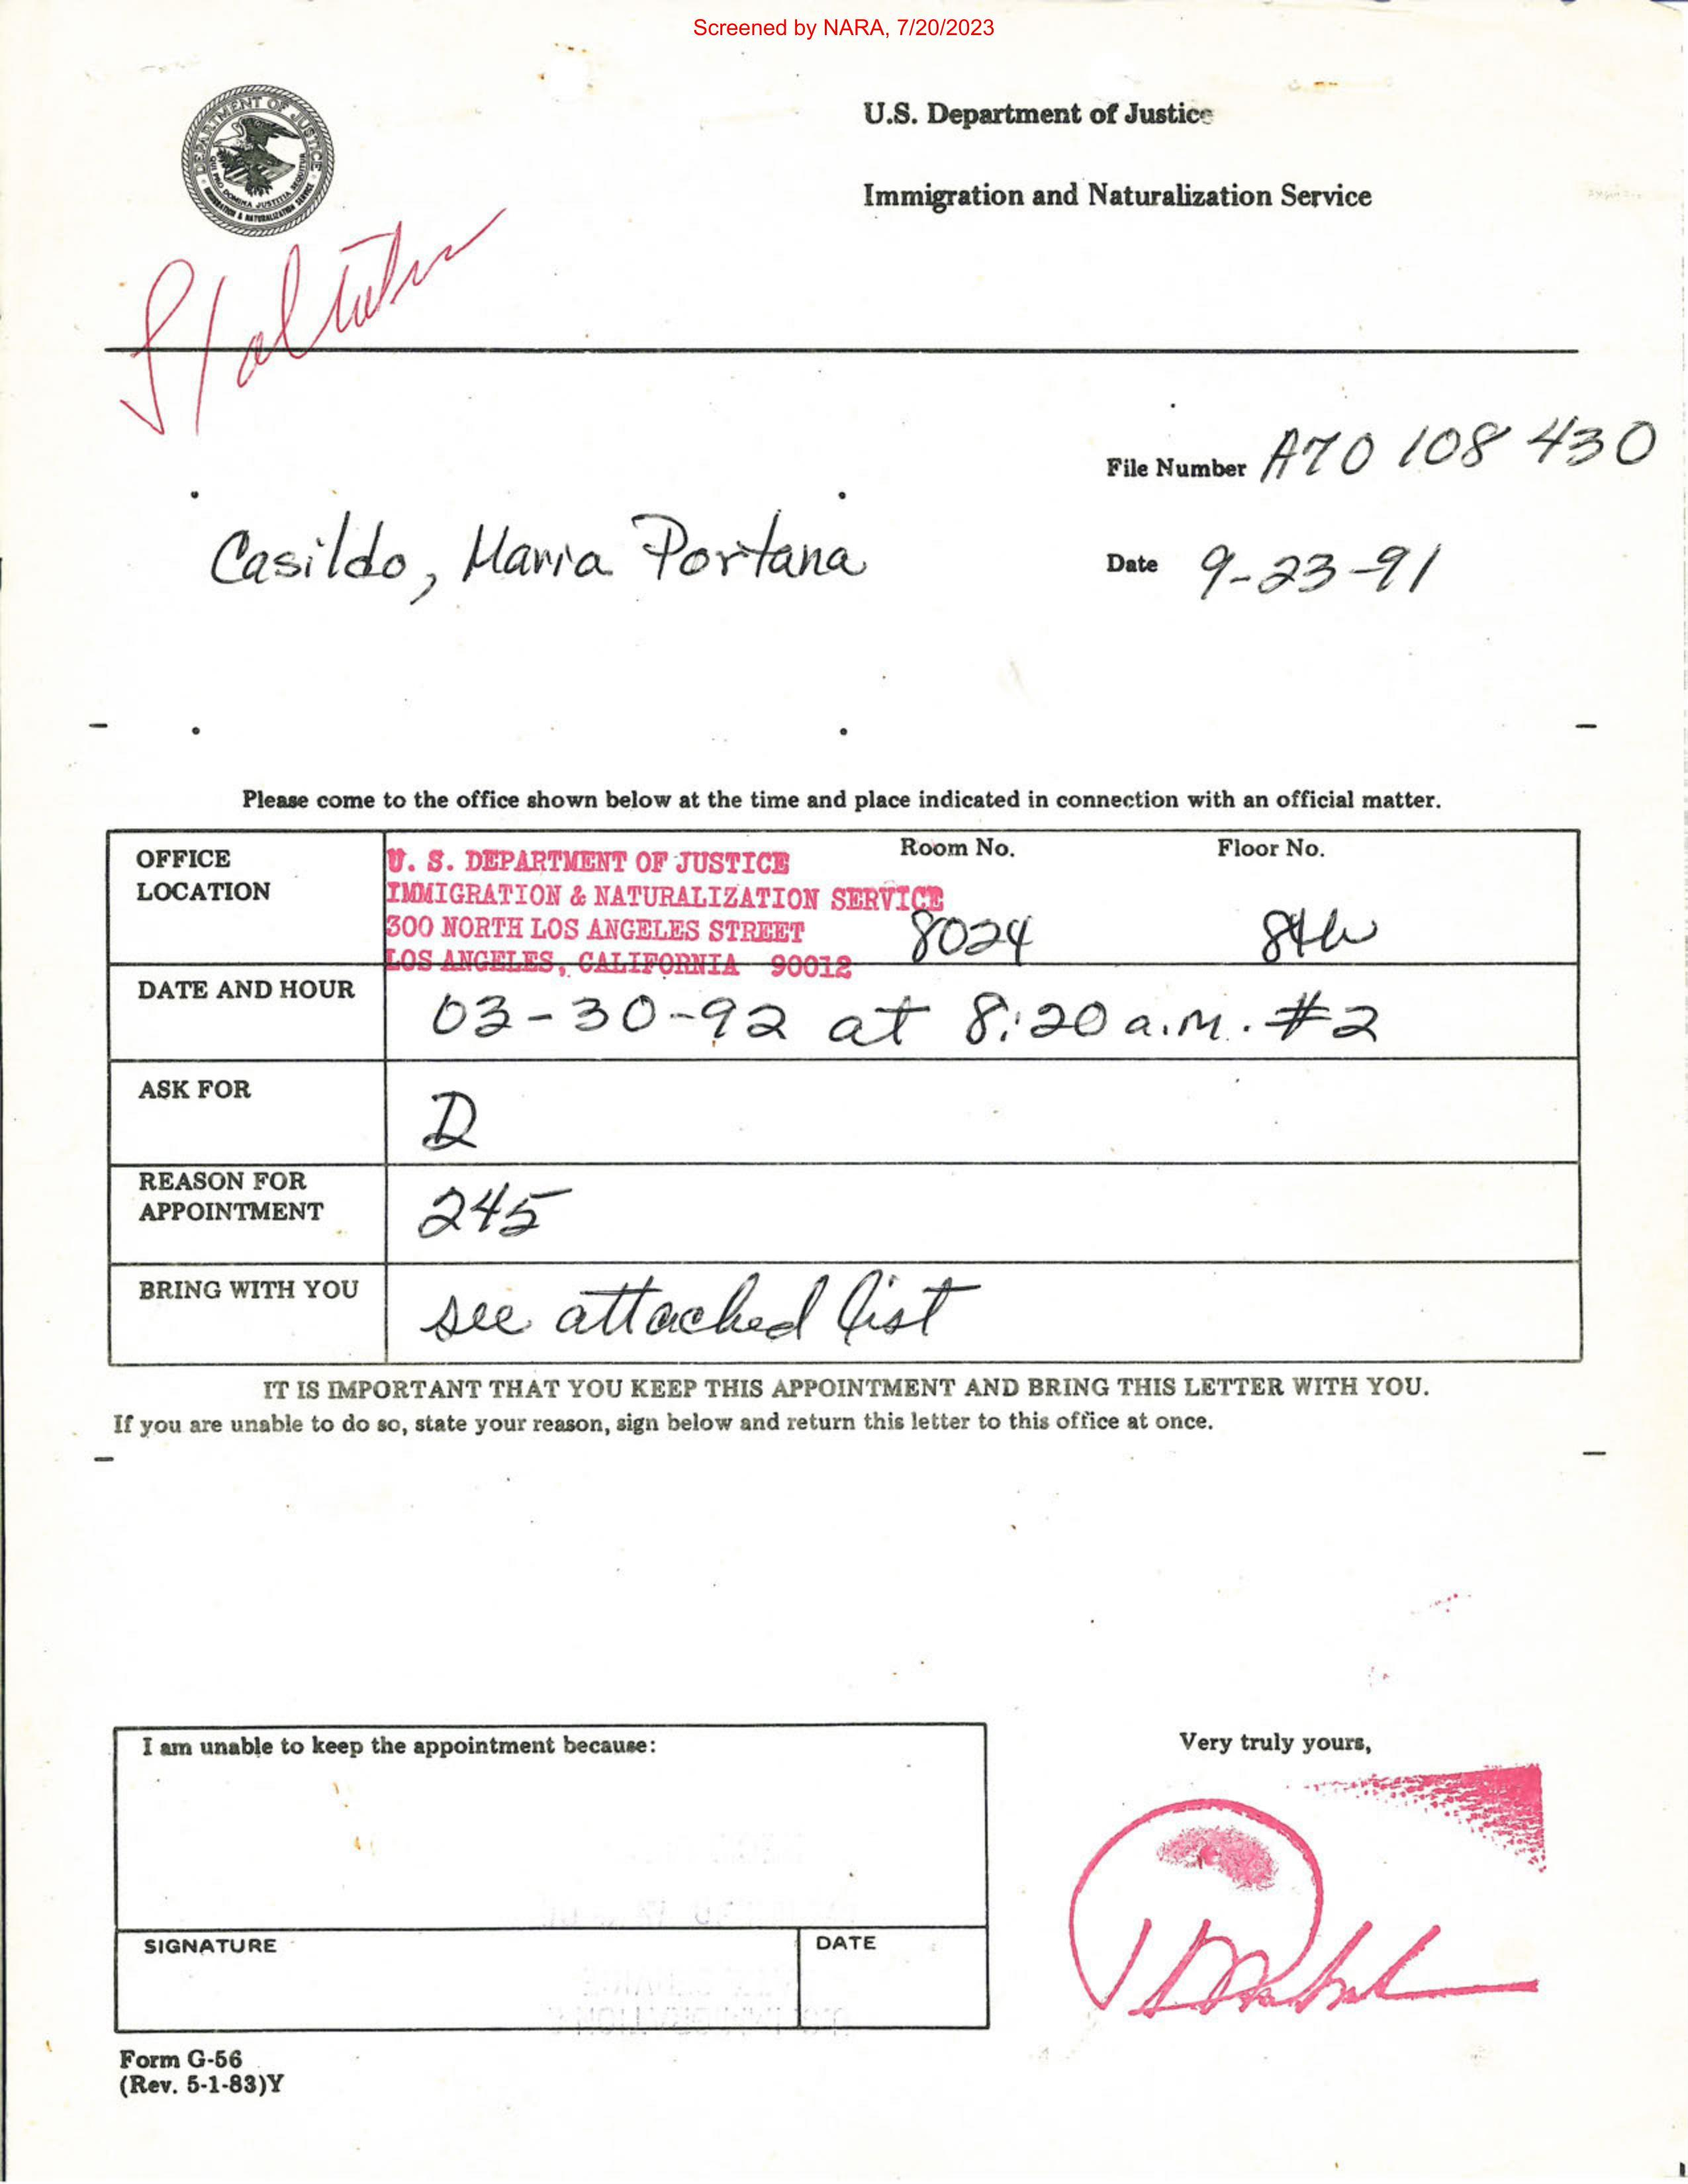 Screened by NARA, 7/20/2023
DEPARTMENT OF JUSTICE
QUI PRO DOMINA JUSTITIA SEQUITUR
IMMIGRATION & NATURALIZATION SERVICE
U.S. Department of Justice
Immigration and Naturalization Service
File Number A70 108 430
Casildo, Maria Portana
Date 9-23-91
Please come to the office shown below at the time and place indicated in connection with an official matter.
OFFICE LOCATION
U. S. DEPARTMENT OF JUSTICE
IMMIGRATION & NATURALIZATION SERVICE
300 NORTH LOS ANGELES STREET
LOS ANGELES, CALIFORNIA 90012
Room No.
8024
Floor No.
8th
DATE AND HOUR
03-30-92 at 8:20 a.m. #2
ASK FOR
D
REASON FOR APPOINTMENT
245
BRING WITH YOU
see attached list
IT IS IMPORTANT THAT YOU KEEP THIS APPOINTMENT AND BRING THIS LETTER WITH YOU.
If you are unable to do so, state your reason, sign below and return this letter to this office at once.
I am unable to keep the appointment because:
Very truly yours,
SIGNATURE
DATE
Form G-56
(Rev. 5-1-83)Y